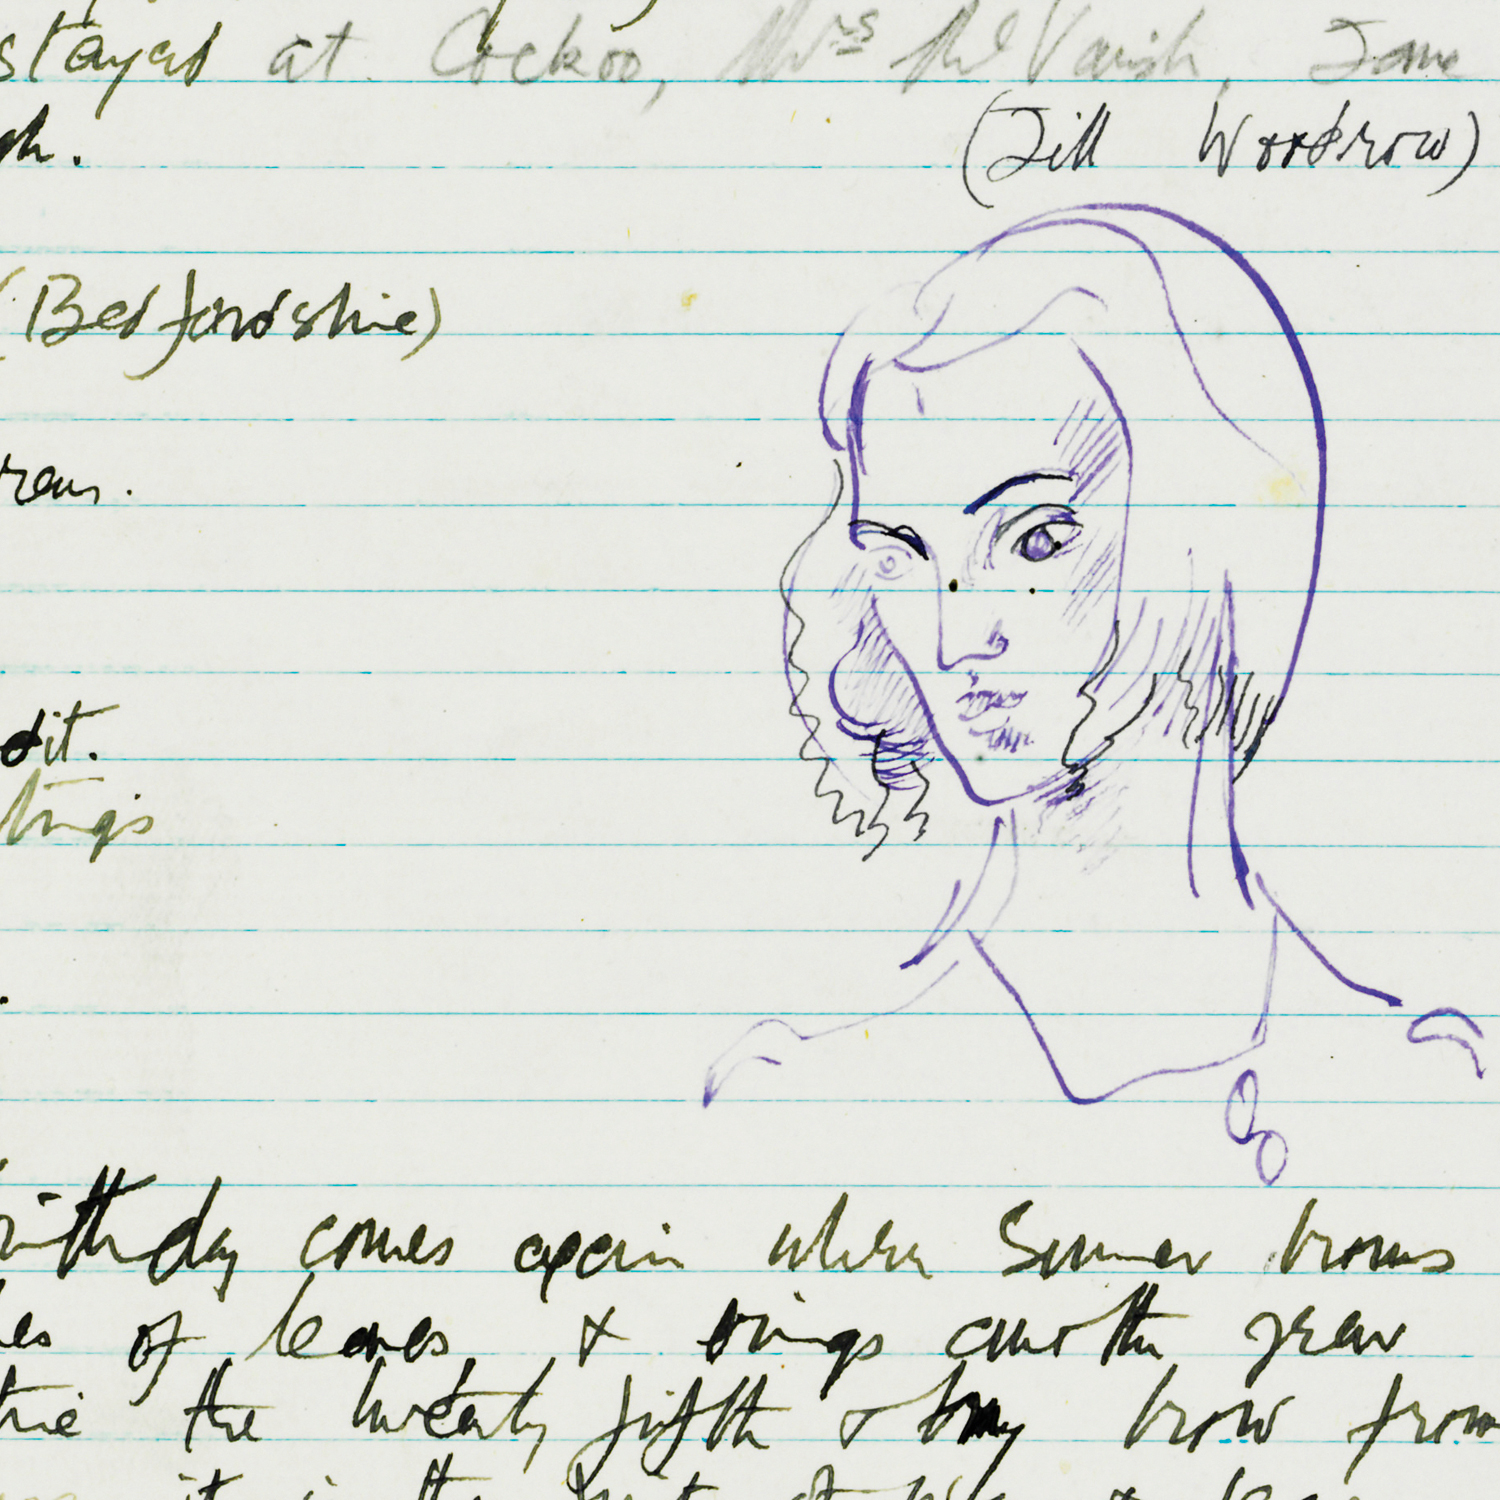 stayed at Cockoo, Mrs McVanish, Jane
(Jill Woodrow)
(Bedfordshire)
dit.
tings
birthday comes again when Summer browns
of leaves & brings another year
the twenty fifth & my brow from
it is the